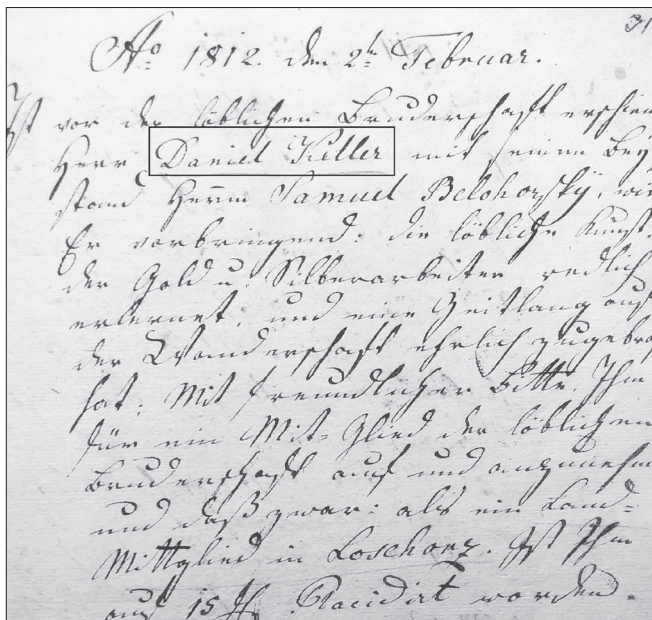 31
Aō 1812. den 2tn Februar.
Ist vor der löblichen Bruderschafft erschien
Herr Daniel Killer mit seinen Bey
stand Herrn Samuel Belohorsky, wie
Er vorbringend: die löbliche Kunst
der Gold u: Silberarbeiter redlich
erlernet, und eine Zeitlang auf
der Wanderschafft ehrlich zugebra
hat: Mit freundlicher Bitte, Ihm
für ein Mit-Glied der löblichen
Bruderschafft auf und anzunehm
und daß zwar: als ein Land-
Mittglied in Loschonz. Ist Ihm
auf 15 f Placidirt worden.